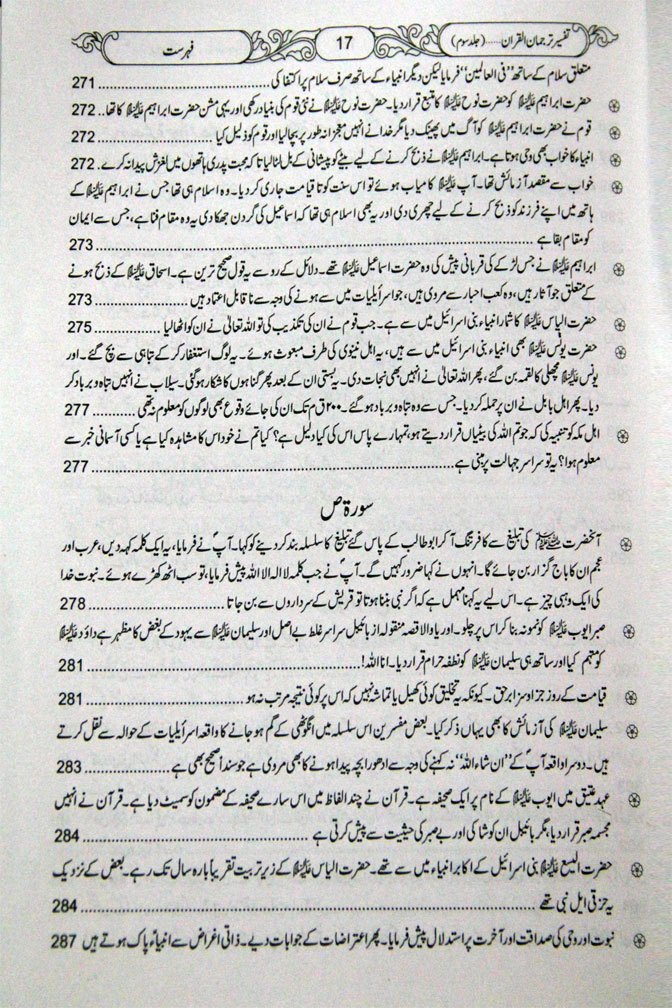 تفسیر ترجمان القرآن......(جلد سوم)
17
فہرست
متعلق سلام کے ساتھ "فی العالمین" فرمایا لیکن دیگر انبیاء کے ساتھ صرف سلام پر اکتفا کی ........ 271
حضرت ابراہیم علیہ السلام کو حضرت نوح علیہ السلام کا متبع قرار دیا۔ حضرت نوح علیہ السلام نے نئی قوم کی بنیاد رکھی اور یہی مشن حضرت ابراہیم علیہ السلام کا تھا.. 272
قوم نے حضرت ابراہیم علیہ السلام کو آگ میں پھینک دیا مگر خدا نے انہیں معجزانہ طور پر بچا لیا اور قوم کو ذلیل کیا ........ 272
انبیاء کا خواب بھی وحی ہوتا ہے۔ ابراہیم علیہ السلام نے ذبح کرنے کے لیے بیٹے کو پیشانی کے بل لٹایا تاکہ محبت پدری ہاتھوں میں لغزش پیدا نہ کرے.. 272
خواب سے مقصد آزمائش تھا۔ آپ علیہ السلام کامیاب ہوئے تو اس سنت کو تا قیامت جاری کر دیا۔ وہ اسلام ہی تھا جس نے ابراہیم علیہ السلام کے
ہاتھ میں اپنے فرزند کو ذبح کرنے کے لیے چھری دی اور یہ بھی اسلام ہی تھا کہ اسماعیل کی گردن جھکا دی یہ وہ مقام فنا ہے، جس سے ایمان
کو مقام بقا ہے ........ 273
ابراہیم علیہ السلام نے جس لڑکے کی قربانی پیش کی وہ حضرت اسماعیل علیہ السلام تھے۔ دلائل کے رو سے یہ قول صحیح ترین ہے۔ اسحاق علیہ السلام کے ذبح ہونے
کے متعلق جو آثار ہیں، وہ کعب احبار سے مروی ہیں، جو اسرائیلیات میں سے ہونے کی وجہ سے ناقابل اعتماد ہیں ........ 273
حضرت الیاس علیہ السلام کا شمار انبیاء بنی اسرائیل میں سے ہے۔ جب قوم نے ان کی تکذیب کی تو اللہ تعالیٰ نے ان کو اٹھا لیا ........ 275
حضرت یونس علیہ السلام بھی انبیاء بنی اسرائیل میں سے ہیں، یہ اہل نینویٰ کی طرف مبعوث ہوئے۔ یہ لوگ استغفار کر کے تباہی سے بچ گئے۔ اور
یونس علیہ السلام مچھلی کا لقمہ بن گئے، پھر اللہ تعالیٰ نے انہیں بھی نجات دی۔ یہ بستی ان کے بعد پھر گناہوں کا شکار ہو گئی۔ سیلاب نے انہیں تباہ و برباد کر
دیا۔ پھر اہل بابل نے ان پر حملہ کر دیا۔ جس سے وہ تباہ و برباد ہو گئے۔ ۲۰۰ ق م تک ان کی جائے وقوع بھی لوگوں کو معلوم نہ تھی ........ 277
اہل مکہ کو تنبیہ کی کہ جو تم اللہ کی بیٹیاں قرار دیتے ہو، تمہارے پاس اس کی کیا دلیل ہے؟ کیا تم نے خود اس کا مشاہدہ کیا ہے یا کسی آسمانی خبر سے
معلوم ہوا؟ یہ تو سراسر جہالت پر مبنی ہے ........ 277
سورۃ ص
آنحضرت ﷺ کی تبلیغ سے کافر تنگ آ کر ابو طالب کے پاس گئے تبلیغ کا سلسلہ بند کر دینے کو کہا۔ آپؐ نے فرمایا، یہ ایک کلمہ کہہ دیں، عرب اور
عجم ان کا باج گزار بن جائے گا۔ انہوں نے کہا ضرور کہیں گے۔ آپؐ نے جب کلمہ لا الہ الا اللہ پیش فرمایا، تو سب اٹھ کھڑے ہوئے۔ نبوت خدا
کی ایک وہبی چیز ہے۔ اس لیے یہ کہنا مہمل ہے کہ اگر نبی بننا ہوتا تو قریش کے سرداروں سے بن جاتا ........ 278
صبر ایوب علیہ السلام کو نمونہ بنا کر اس پر چلو۔ اور یا والا قصہ منقولہ از بائیبل سراسر غلط بے اصل اور سلیمان علیہ السلام سے یہود کے بغض کا مظہر ہے داؤد علیہ السلام
کو متہم کیا اور ساتھ ہی سلیمان علیہ السلام کو نطفہ حرام قرار دیا۔ انا للہ! ........ 281
قیامت کے روز جزا و سزا برحق۔ کیونکہ یہ تخلیق کوئی کھیل یا تماشہ نہیں کہ اس پر کوئی نتیجہ مرتب نہ ہو ........ 281
سلیمان علیہ السلام کی آزمائش کا بھی یہاں ذکر کیا۔ بعض مفسرین اس سلسلہ میں انگوٹھی کے گم ہو جانے کا واقعہ اسرائیلیات کے حوالہ سے نقل کرتے
ہیں۔ دوسرا واقعہ آپؑ کے "ان شاء اللہ" نہ کہنے کی وجہ سے ادھورا بچہ پیدا ہونے کا بھی مروی ہے جو سنداً اصح بھی ہے ........ 283
عہد عتیق میں ایوب علیہ السلام کے نام پر ایک صحیفہ ہے۔ قرآن نے چند الفاظ میں اس سارے صحیفہ کے مضمون کو سمیٹ دیا ہے۔ قرآن نے انہیں
مجسمہ صبر قرار دیا، مگر بائیبل ان کو شاکی اور بے صبر کی حیثیت سے پیش کرتی ہے ........ 284
حضرت الیسع علیہ السلام بنی اسرائیل کے اکابر انبیاء میں سے تھے۔ حضرت الیاس علیہ السلام کے زیر تربیت تقریباً بارہ سال تک رہے۔ بعض کے نزدیک
یہ حزقی ایل نبی تھے ........ 284
نبوت اور وحی کی صداقت اور آخرت پر استدلال پیش فرمایا۔ پھر اعتراضات کے جوابات دیے۔ ذاتی اغراض سے انبیاءؑ پاک ہوتے ہیں 287